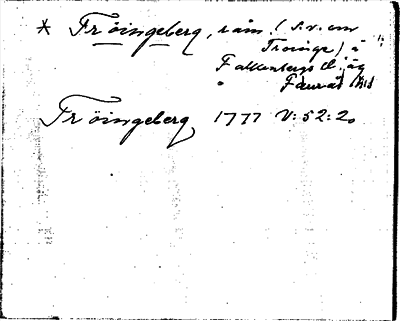 * Fröingeberg, råm. (s.v. om
Troinge) å
Falkenbergs
Faurås Hd
Fröingeberg 1777 V:52:2.